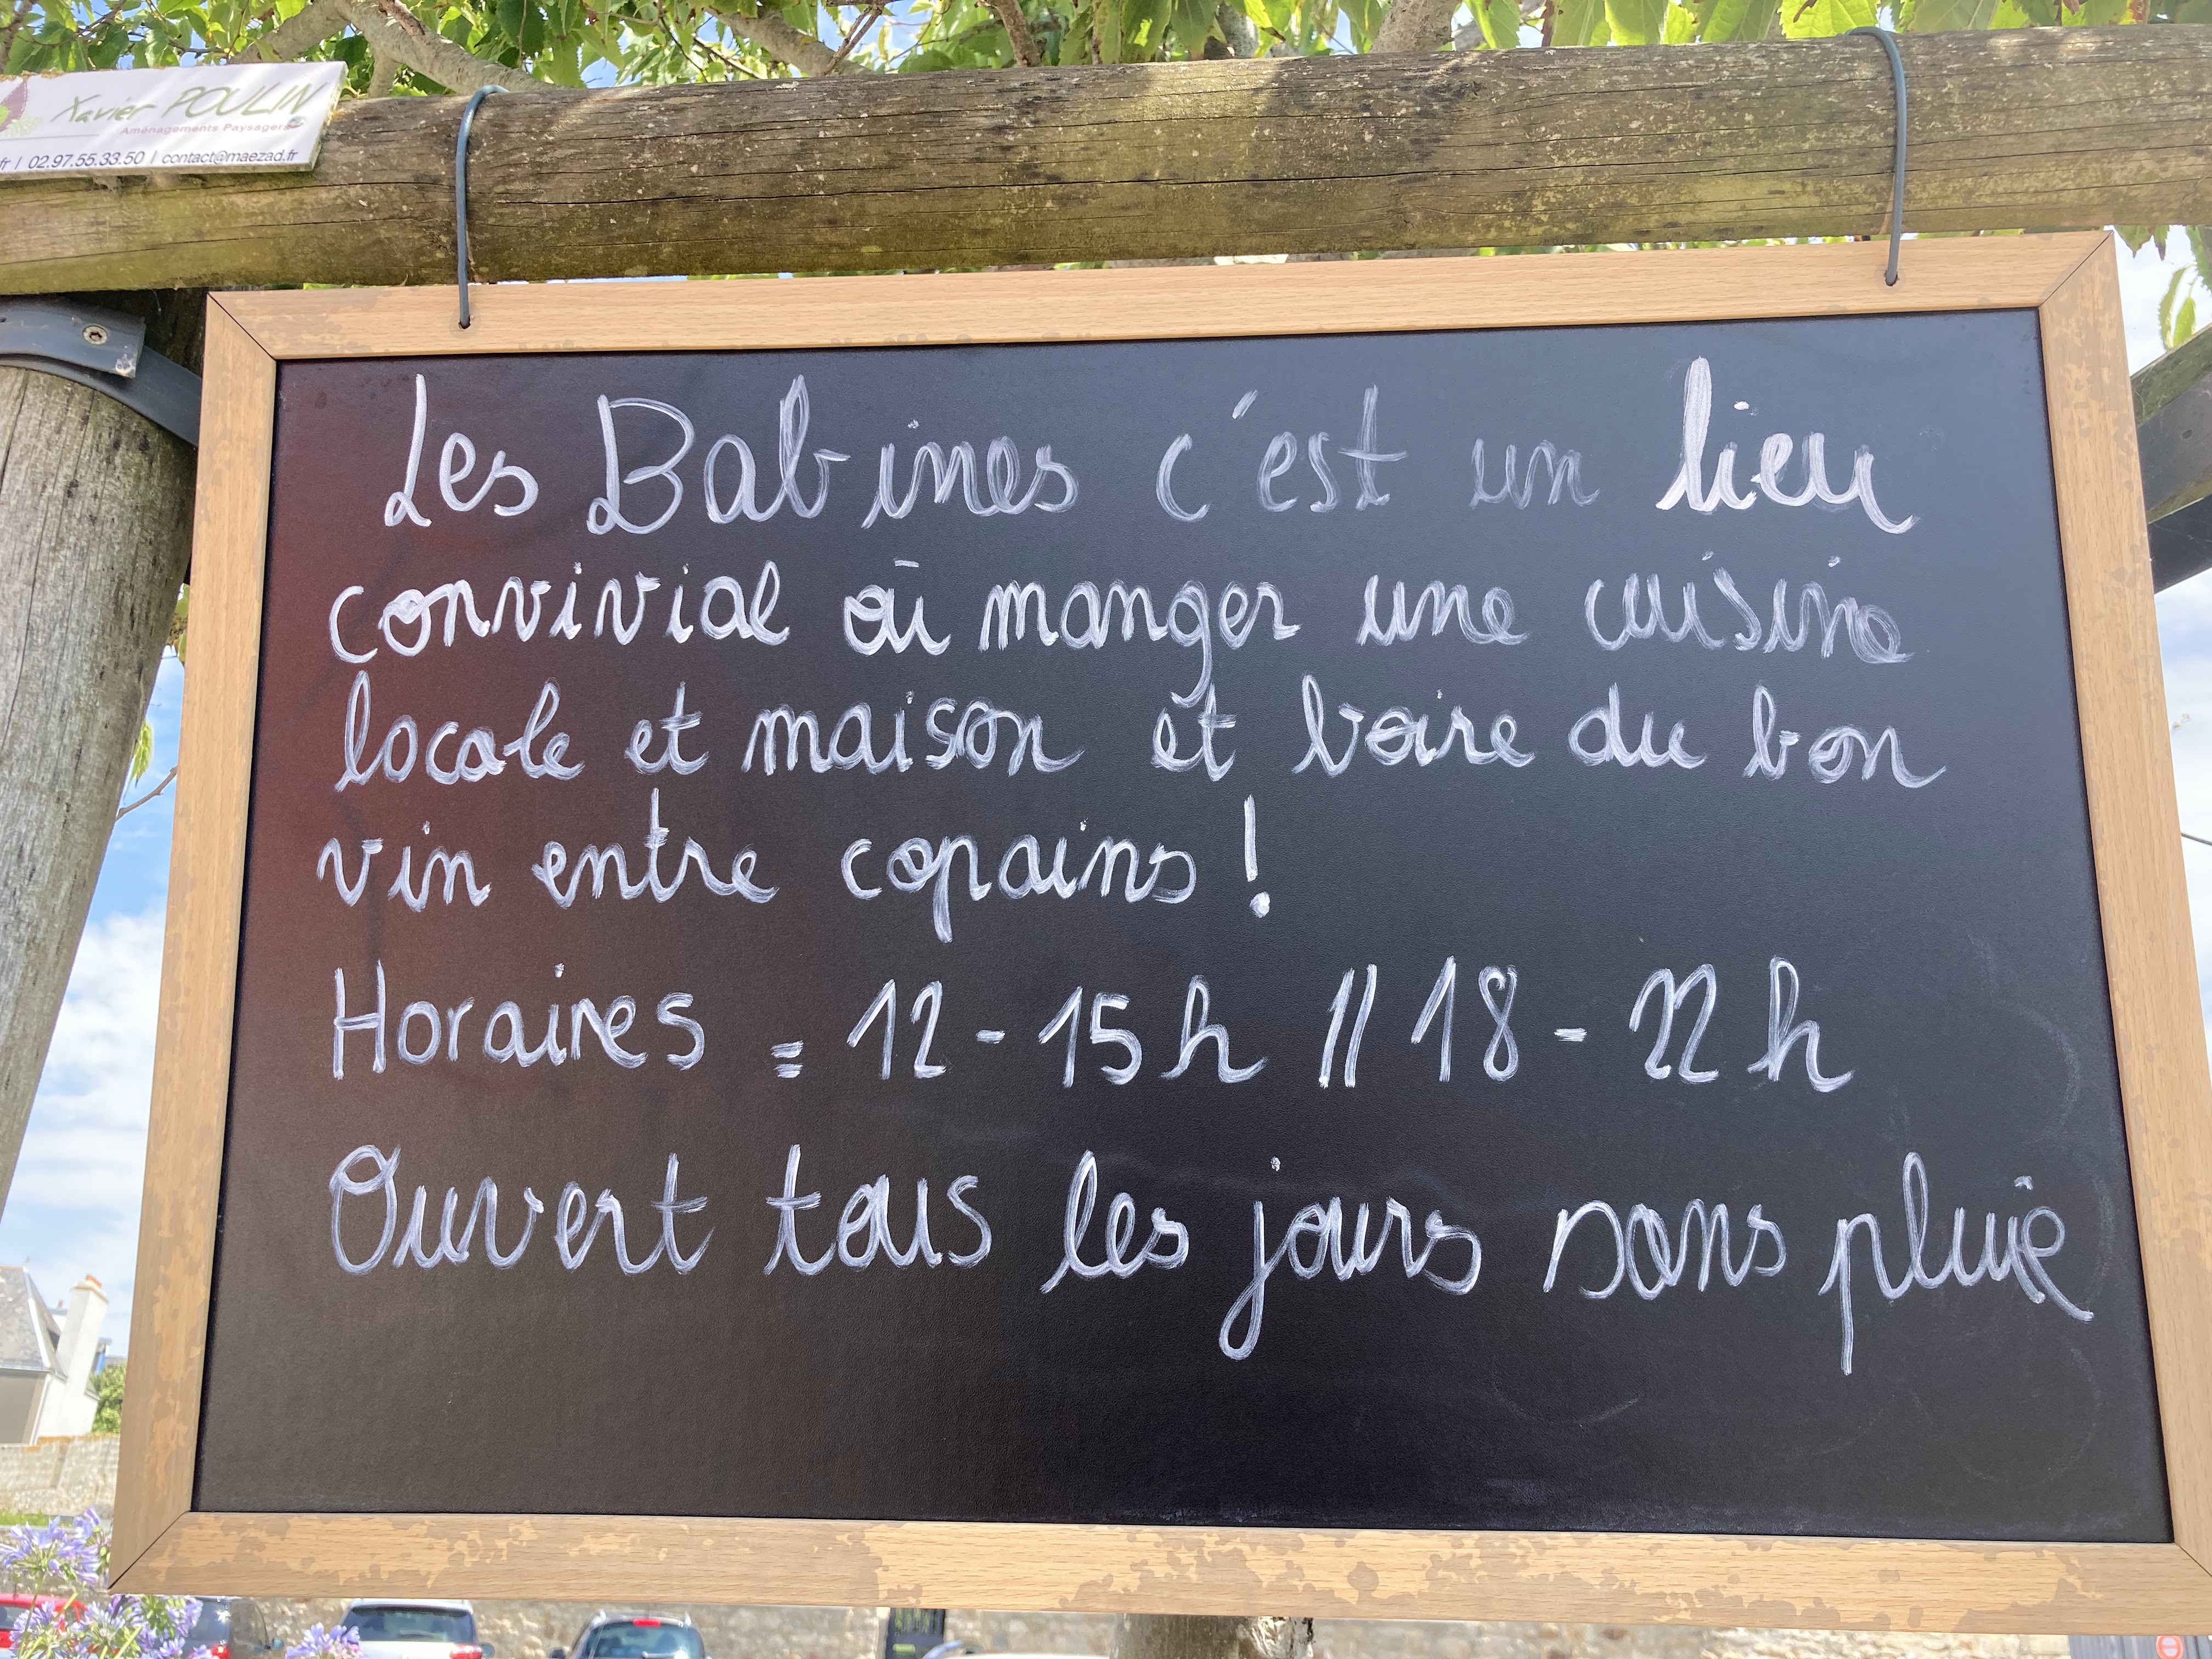 Xavier POULIN
Aménagements Paysagers
fr | 02.97.55.33.50 | contact@maezad.fr
Les Babines c'est un lieu
convivial où manger une cuisine
locale et maison et boire du bon
vin entre copains !
Horaires = 12 - 15 h // 18 - 22 h
Ouvert tous les jours sans pluie